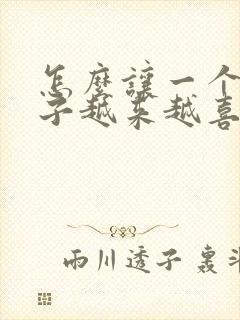 怎麼讓一个
子越来越喜
雨川透子 裏